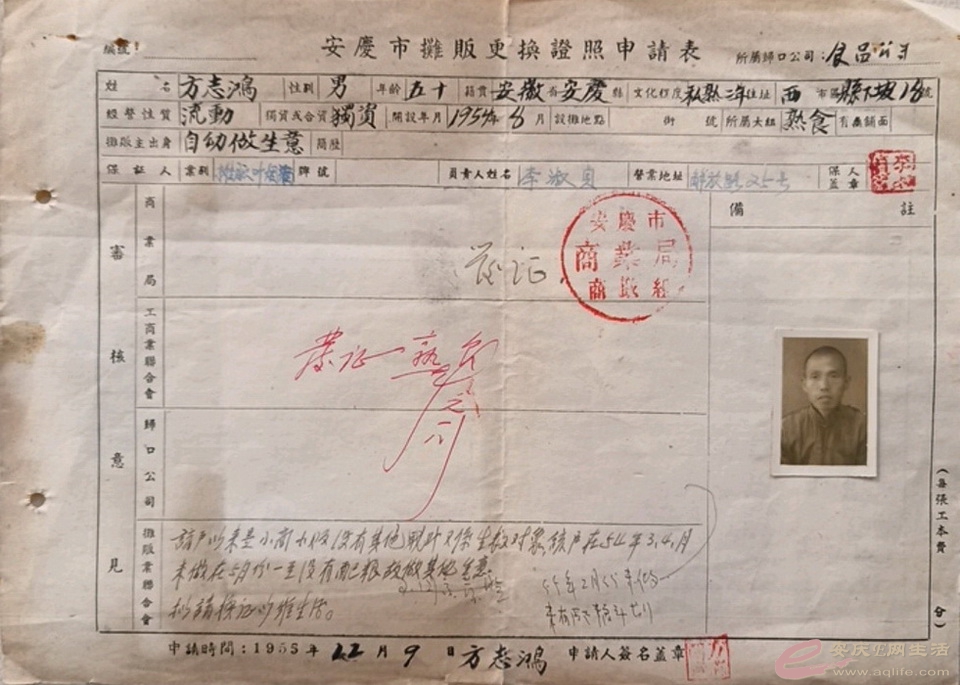 編號：
安慶市攤販更換證照申請表
所屬歸口公司：食品公司
姓名 方志鴻 性別 男 年齡 五十 籍貫 安徽省安慶縣 文化程度 私塾二年 住址 西市區縣下坡18號
經營性質 流動 獨資或合資 獨資 開設年月 1954年8月 設攤地點 街 號 所屬大組 熟食 有無舖面
攤販主出身 自幼做生意 簡歷
保証人 業別 牌號 負責人姓名 李淑貞 營業地址 解放路25号 保人蓋章
審核意見
備註
商業局
發证
安慶市
商業局
工商業聯合會
業证一熟食
歸口公司
攤販業聯合會
該户以来是小商小贩没有其他職业 該户在54年3.4.月
未做在5月份一至没有
拟請换证以维生活。
55年2月
申請時間：1955年12月9日 方志鴻 申請人簽名蓋章
(每張工本費 分)
安庆E网生活
www.aqlife.com